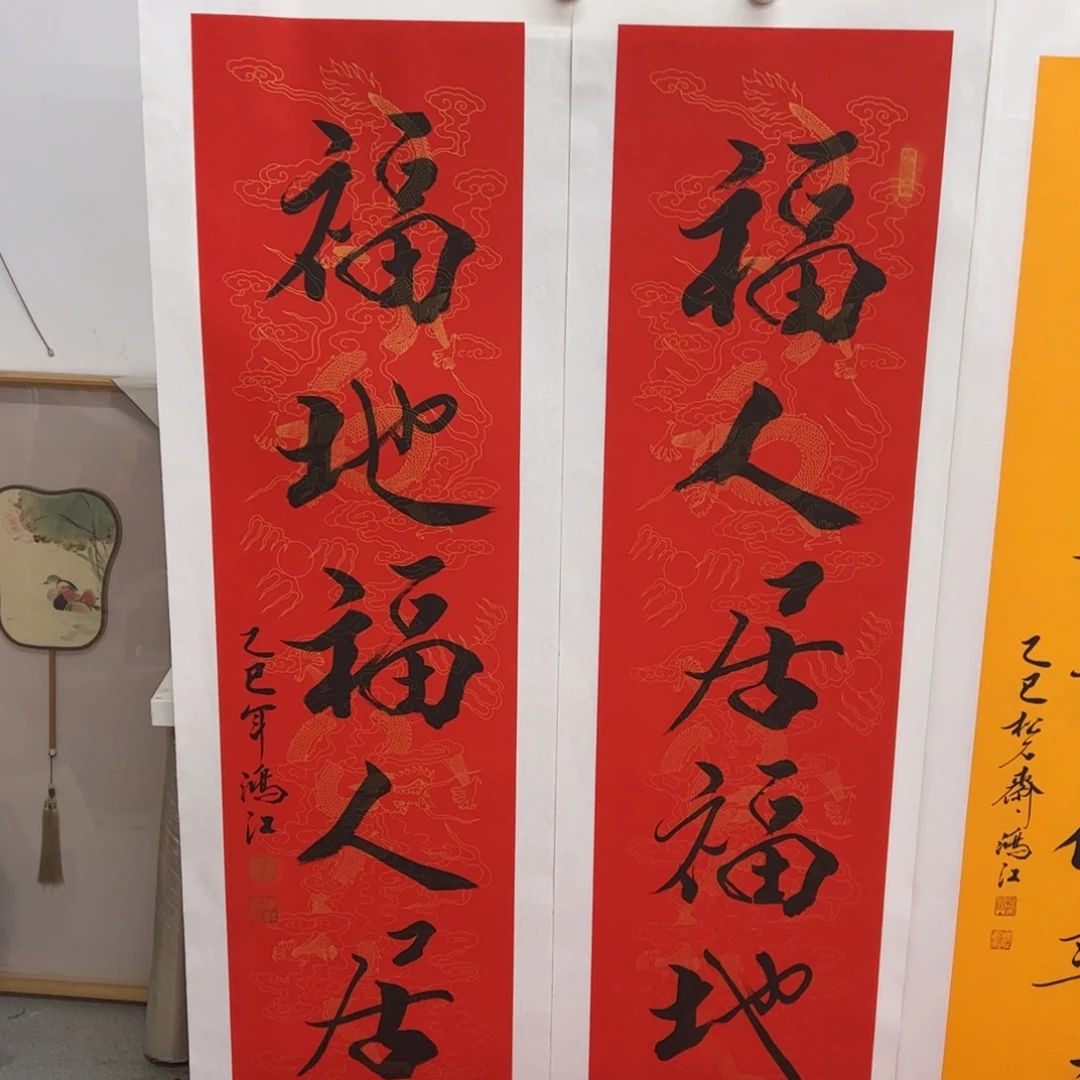 福人居福地
福地福人居
乙巳年鴻江
乙巳松石齋鴻江